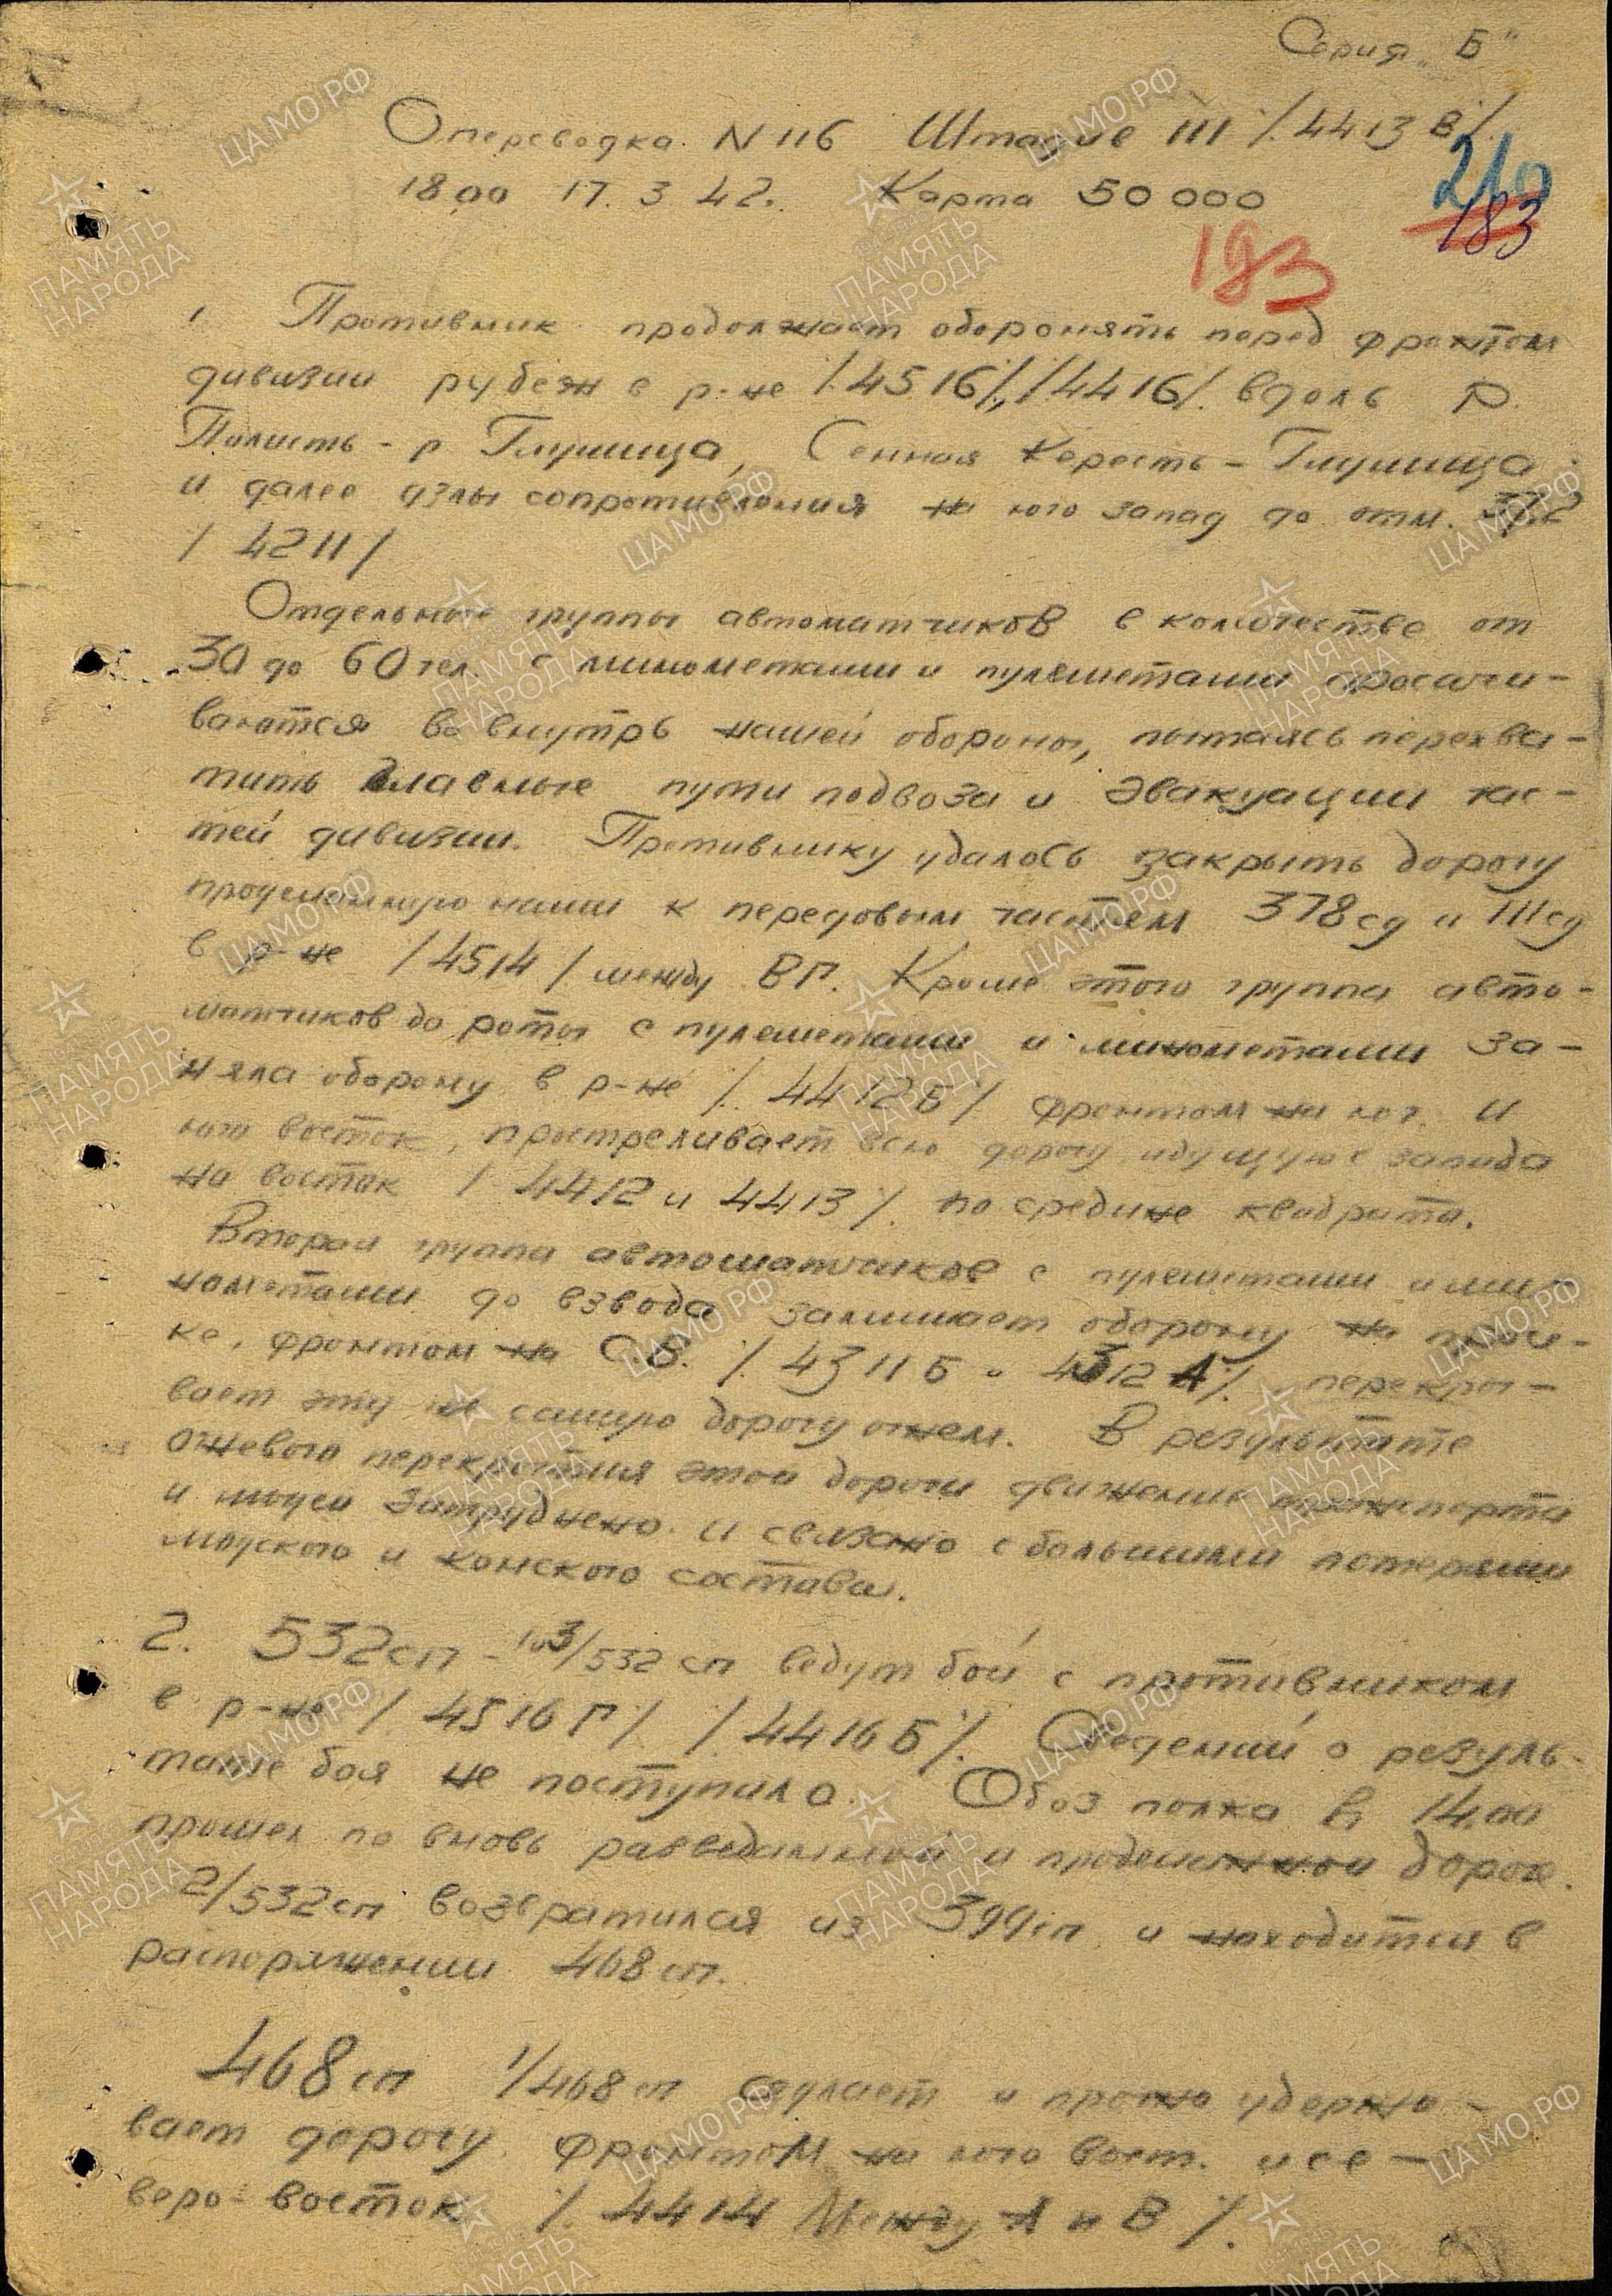 Серия „Б"
Оперсводка N 116 Штадив 111 /.4413 В/.
18 00 17. 3 42. Карта 50 000
210
183
183
1 Противник продолжает оборонять перед фронтом
дивизии рубеж в р-не /.4516/., /4416/. вдоль р.
Полисть - р Глушица, Сенная Кересть - Глушица
и далее узлы сопротивления на юго запад до отм. 37,2
/ 4211/
Отдельные группы автоматчиков в количестве от
30 до 60 чел. с минометами и пулеметами просачи-
ваются во внутрь нашей обороны, пытаясь перехва-
тить главные пути подвоза и эвакуации час-
тей дивизии. Противнику удалось закрыть дорогу
проделанную нами к передовым частям 378 сд и 111 сд
в р-не /4514/ между В Г. Кроме этого группа авто-
матчиков до роты с пулеметами и минометами за-
няла оборону в р-не /. 4412 Б/. фронтом на юг и
юго восток, простреливает всю дорогу идущую с запада
на восток /. 4412 и 4413 /. по средине квадрата.
Вторая группа автоматчиков с пулеметами и ми-
нометами до взвода занимает оборону на просе-
ке, фронтом на С.В. /. 4311 Б и 4312 А/. перекры-
вает эту же самую дорогу огнем. В результате
огневого перекрытия этой дороги движение транспорта
и людей затруднено и связано с большими потерями
людского и конского состава.
2. 532 сп - 1 и 3/532 сп ведут бой с противником
в р-не /. 4516 Г/. /. 4416 Б/. Сведений о резуль-
тате боя не поступило. Обоз полка в 14.00
прошел по вновь разведанной и проделанной дороге.
2/532 сп возвратился из 399 сп и находится в
распоряжении 468 сп.
468 сп 1/468 сп седлает и прочно удержи-
вает дорогу фронтом на юго вост. и се-
веро-восток /. 4414 Между А и В /.
ЦА МО РФ
ПАМЯТЬ
НАРОДА